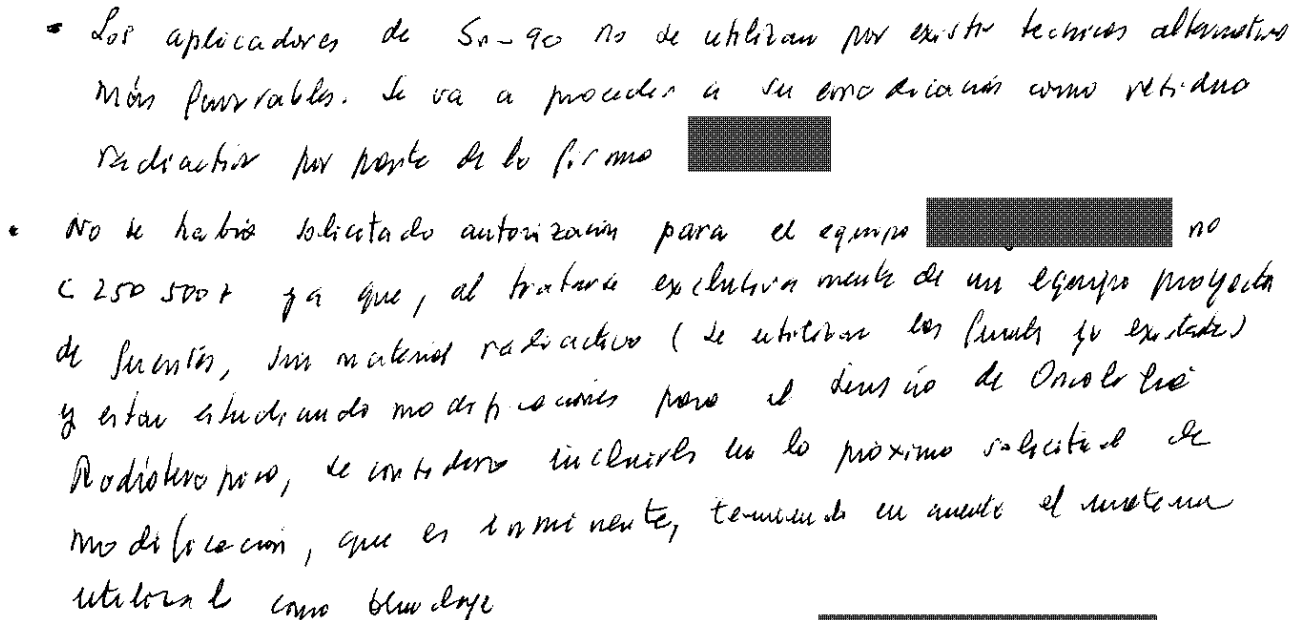 - Los aplicadores de Sr-90 no se utilizan por existir tecnicas alternativas
más favorables. Se va a proceder a su erradicación como residuo
radiactivo por parte de la firma
- No se había solicitado autorización para el equipo no
C 250 500 ya que, al tratarse exclusivamente de un equipo proyector
de fuentes, sin material radiactivo (se utilizan las fuentes ya existentes)
y estar estudiando modificaciones para el servicio de Oncología
Radioterapica, se considero incluirlo en la próxima solicitud de
modificación, que es inminente, teniendo en cuenta el
utilizado como blindaje